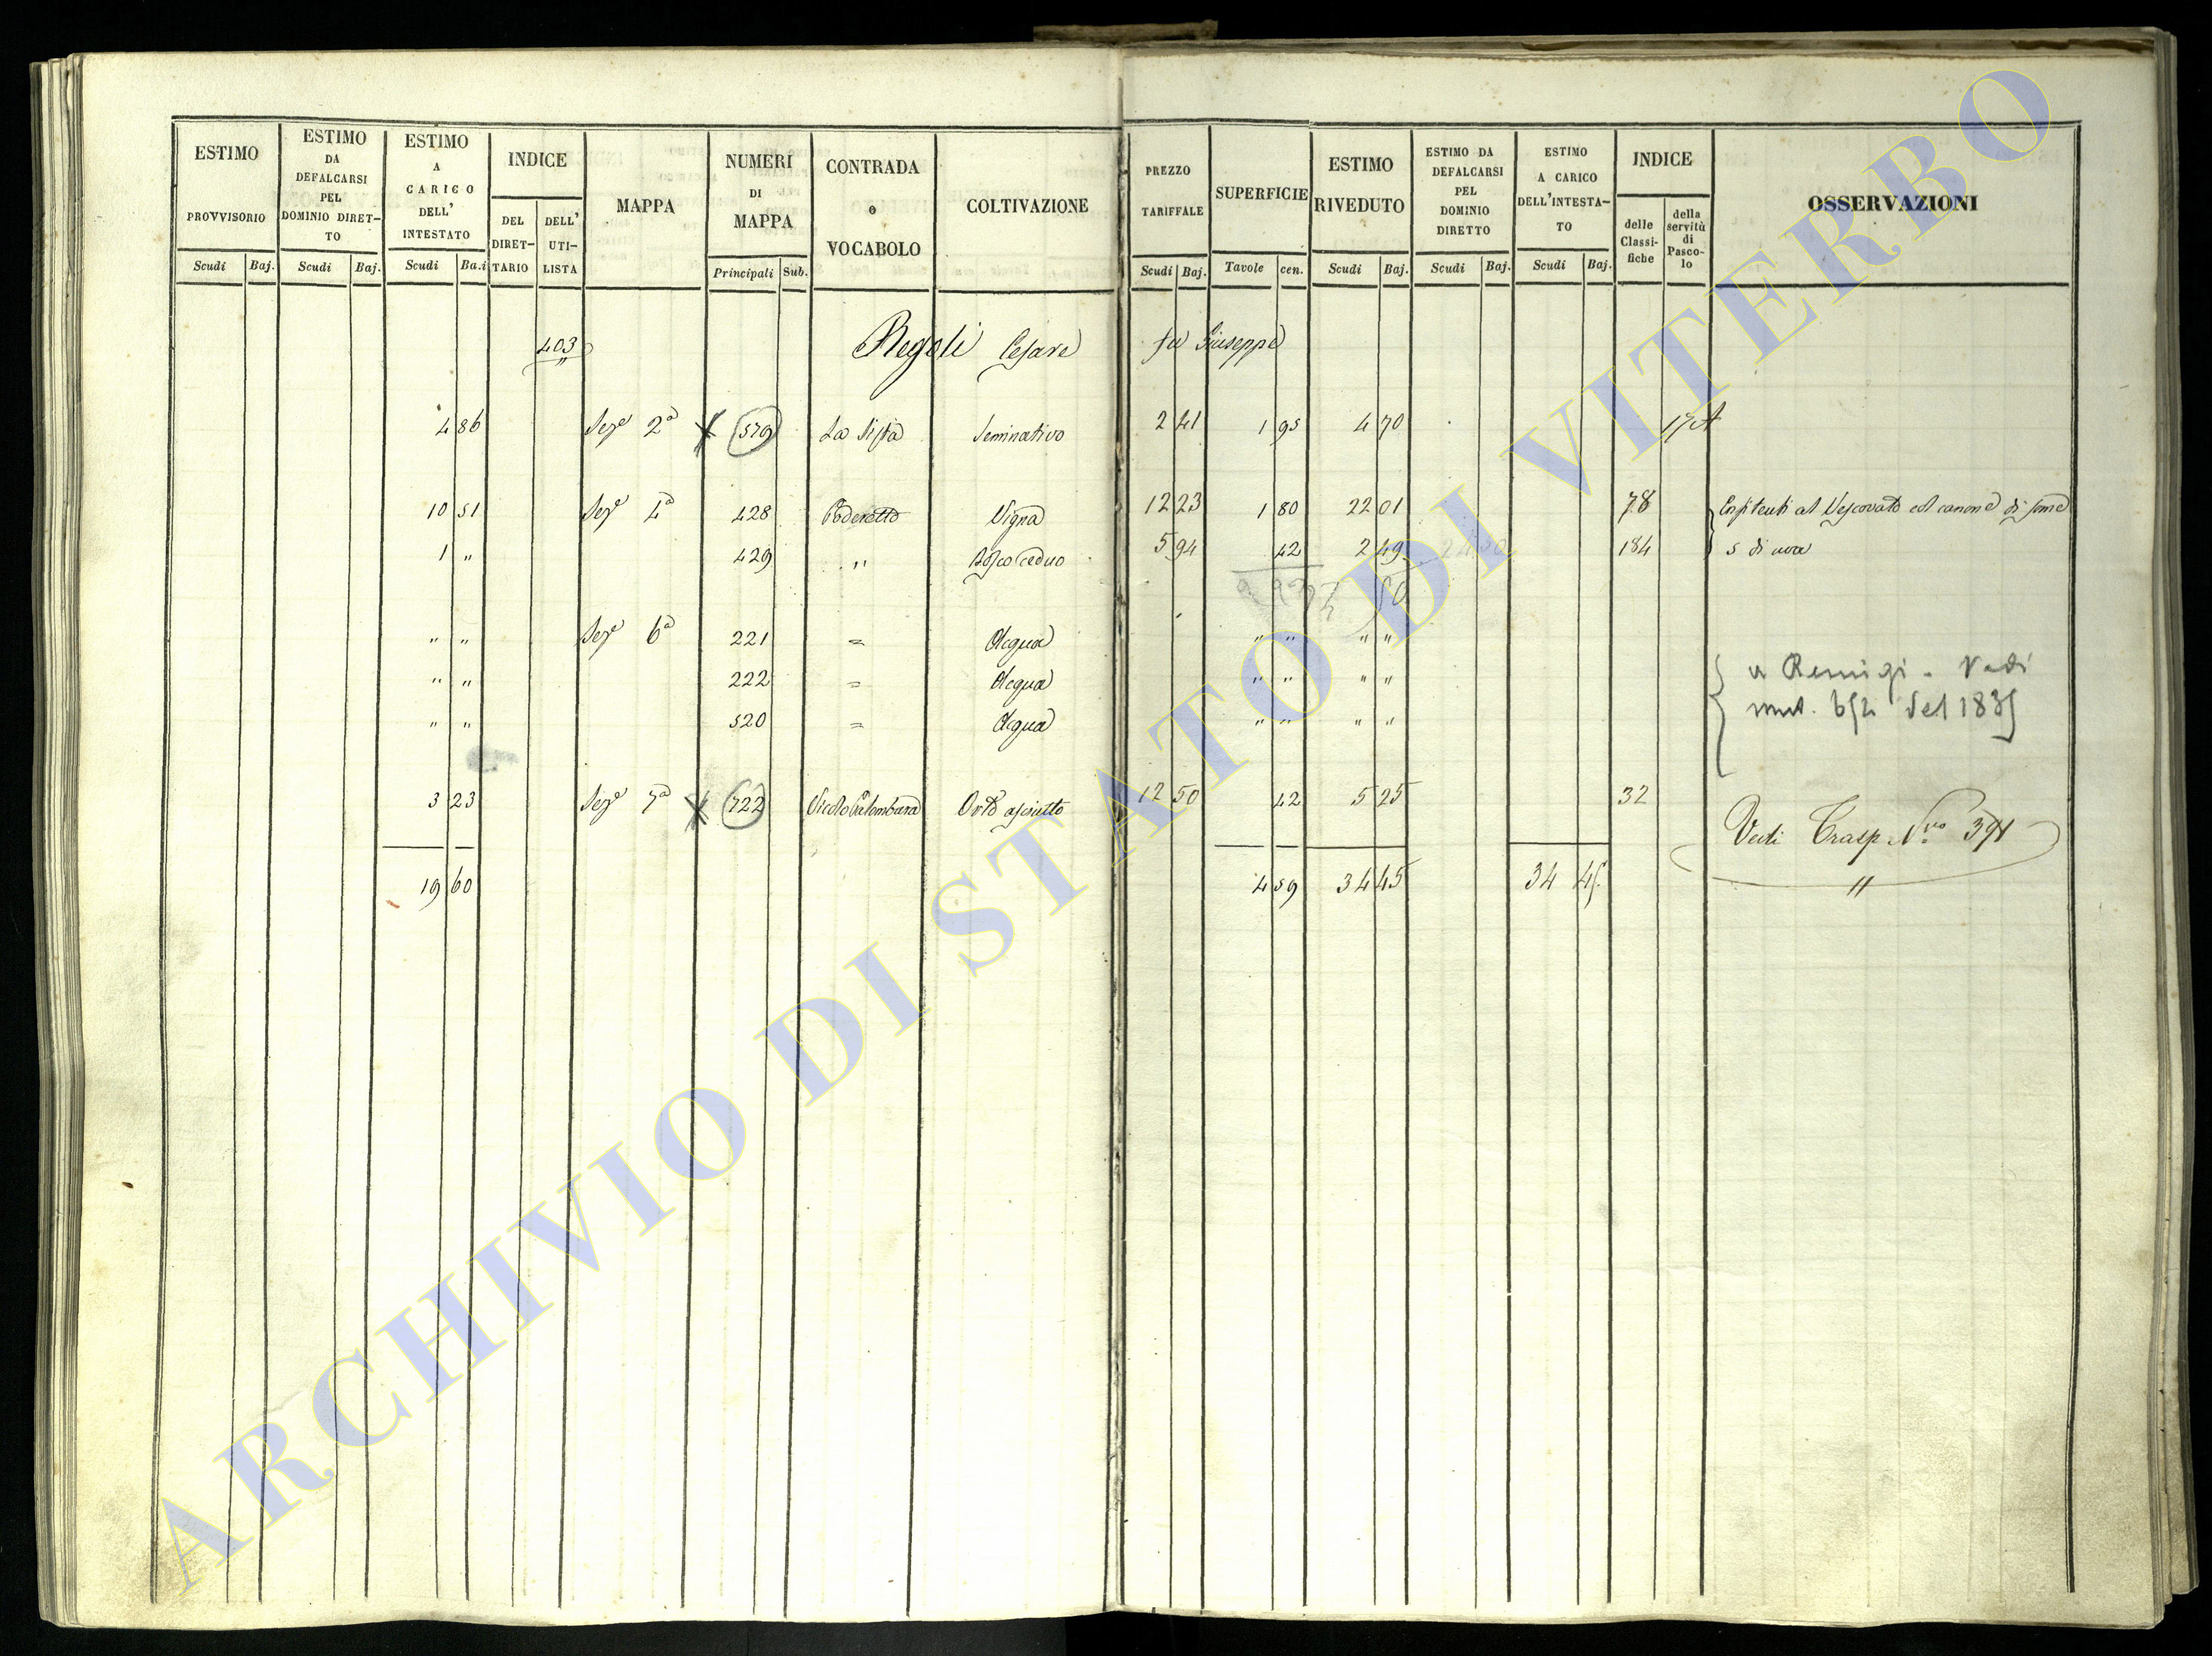 ESTIMO PROVVISORIO
Scudi Baj.
ESTIMO DA DEFALCARSI PEL DOMINIO DIRET-TO
Scudi Baj.
ESTIMO A CARICO DELL' INTESTATO
Scudi Ba.i
INDICE
DEL DIRET-TARIO
DELL' UTI-LISTA
MAPPA
NUMERI DI MAPPA
Principali Sub.
CONTRADA e VOCABOLO
COLTIVAZIONE
PREZZO TARIFFALE
Scudi Baj.
SUPERFICIE
Tavole cen.
ESTIMO RIVEDUTO
Scudi Baj.
ESTIMO DA DEFALCARSI PEL DOMINIO DIRETTO
Scudi Baj.
ESTIMO A CARICO DELL'INTESTA-TO
Scudi Baj.
INDICE
delle Classi-fiche
della servitù di Pasco-lo
OSSERVAZIONI
403 Regoli Cesare fu Giuseppe
4 86 Sezе 2ª 579 La Sista Seminativo 2 41 1 95 4 70 17 A
10 51 Seze 4ª 428 Poderetto Vigna 12 23 1 80 22 01 78 Enfiteuti al Vescovato col canone di some
1 " 429 " Bosco ceduo 5 94 42 2 49 184 5 di uva
" " Seze 6ª 221 = Acqua " " " "
" " 222 = Acqua " " " " a Remigi - Vedi
" " 520 = Acqua " " " " mut. 652 del 1835
3 23 Seze 7ª 722 Vicolo Palombara Orto asciutto 12 50 42 5 25 32
Vedi Trasp. Nro 391
"
19 60 4 59 34 45 34 45
ARCHIVIO DI STATO DI VITERBO